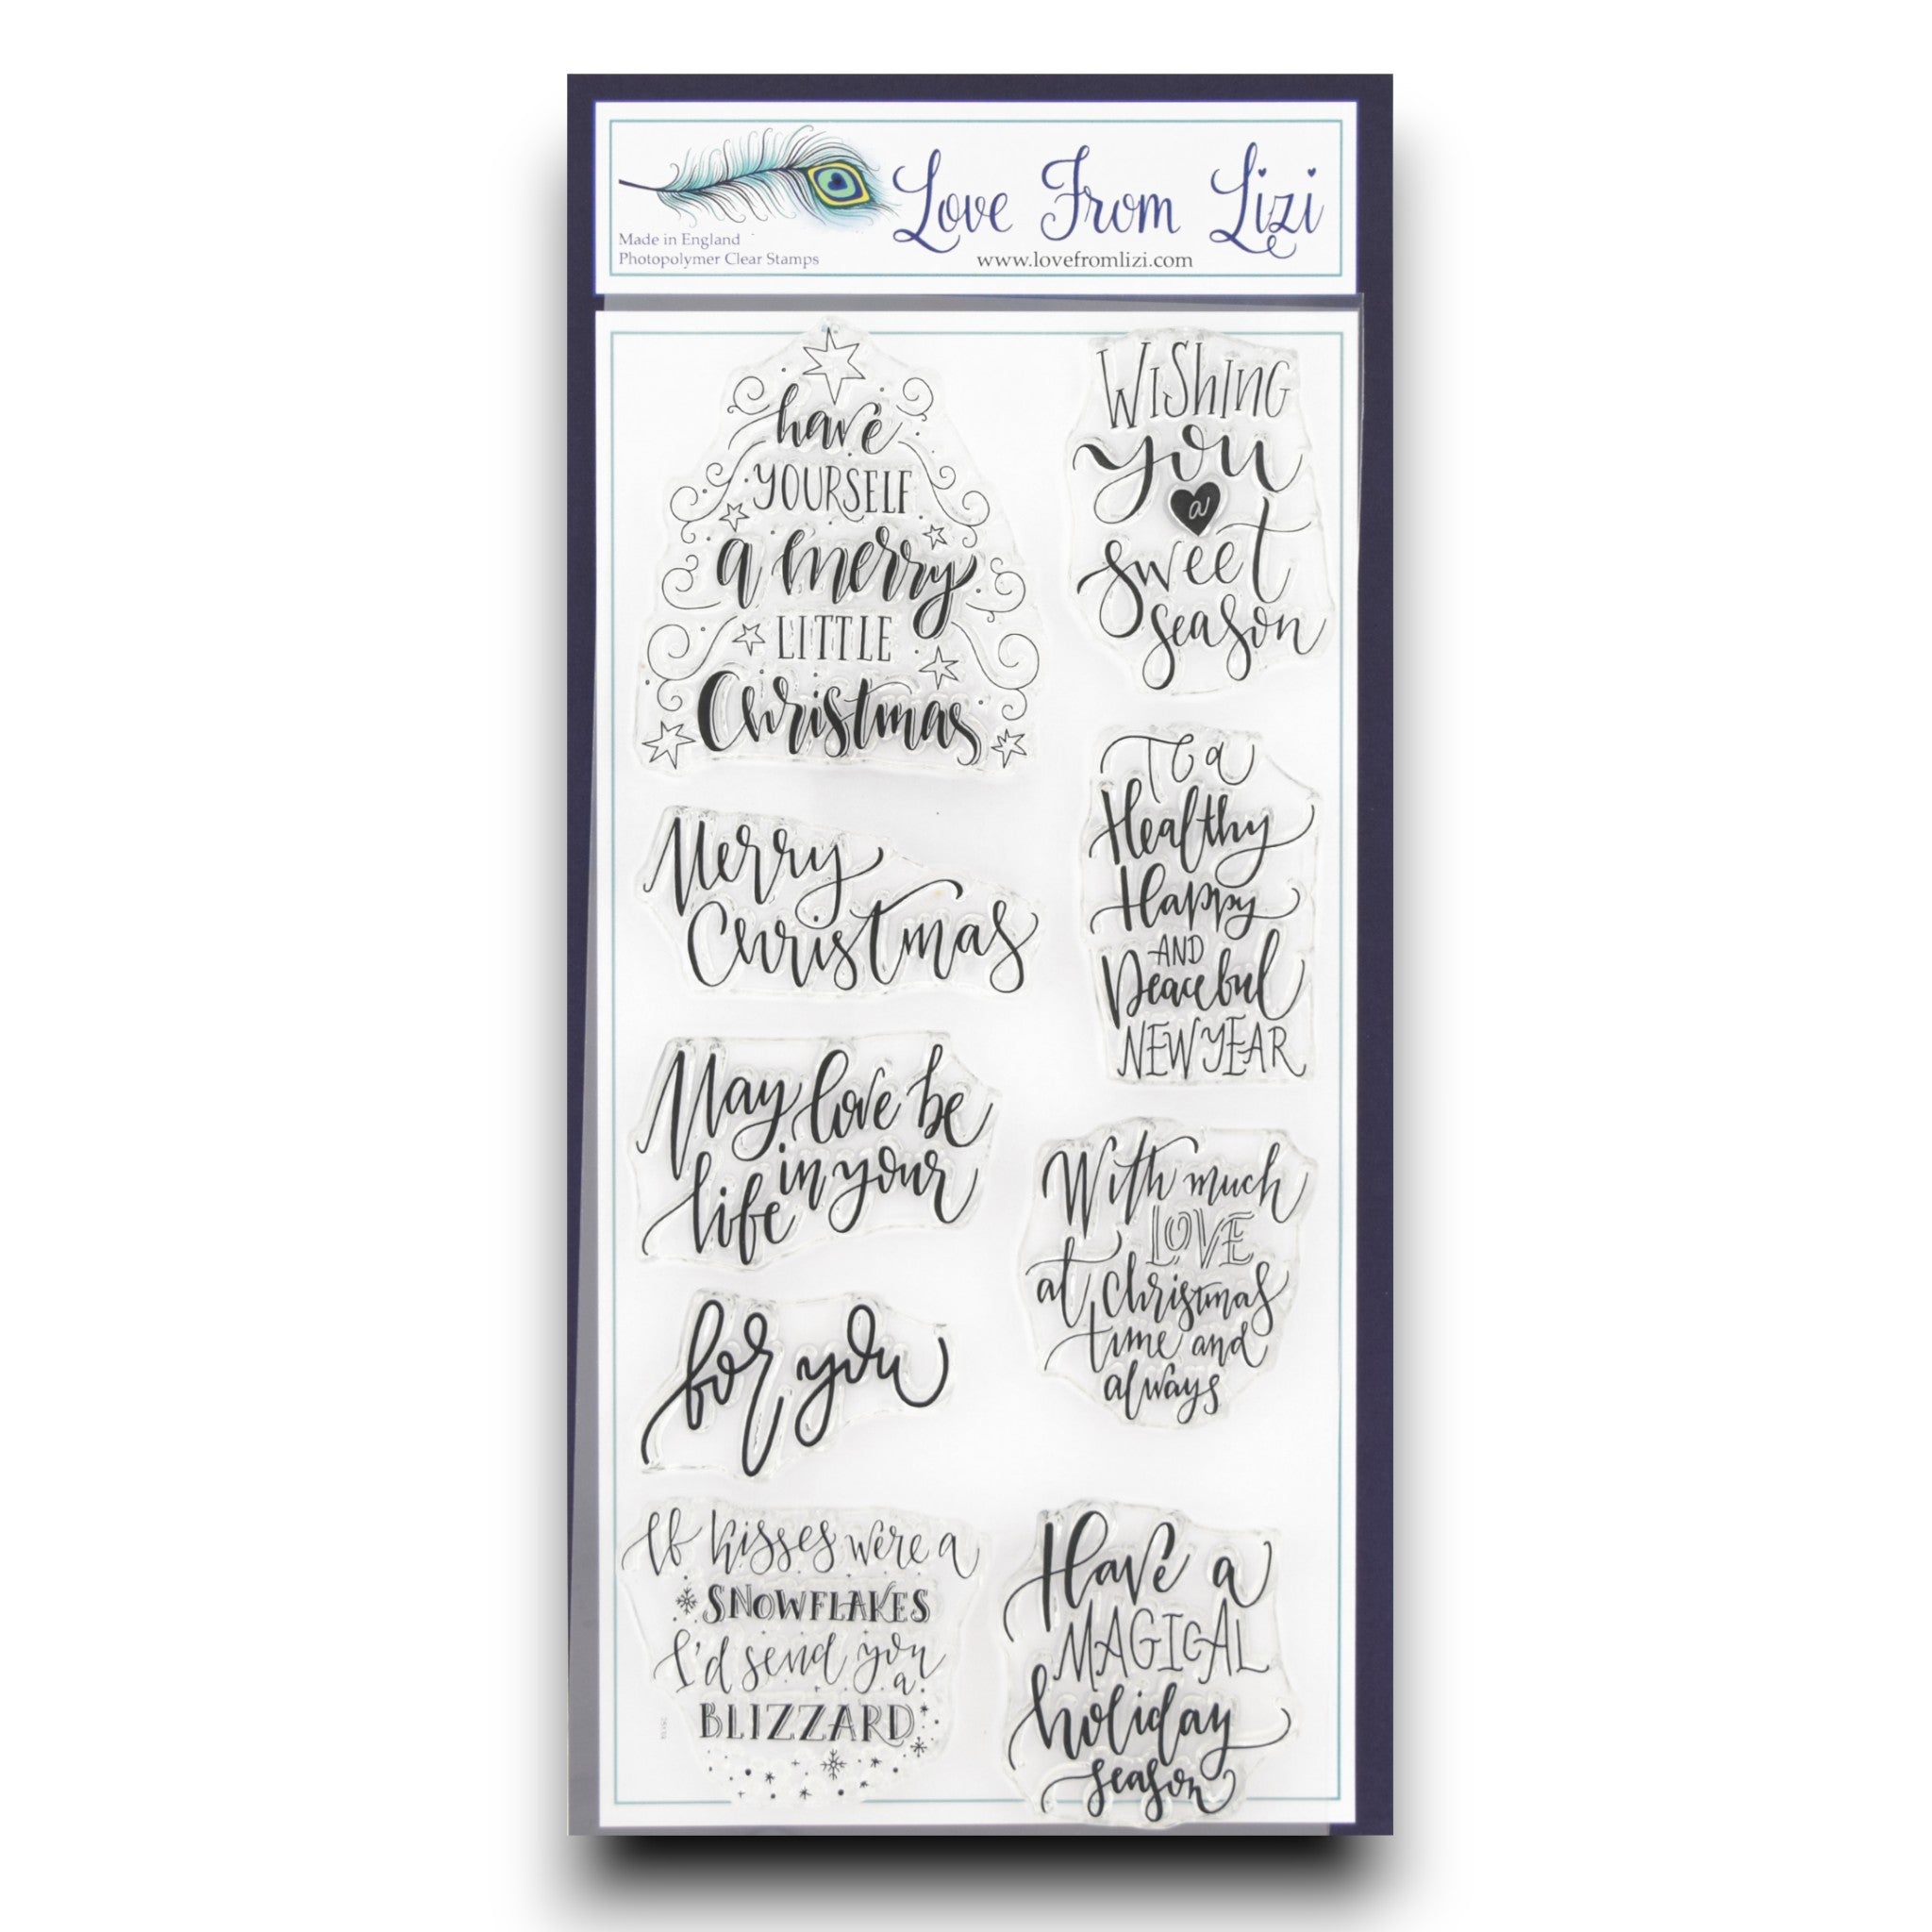 Love From Lizi
Made in England
Photopolymer Clear Stamps
www.lovefromlizi.com
have
YOURSELF
a merry
LITTLE
Christmas
Merry
Christmas
May love be
in your
life
for you
If kisses were a
SNOWFLAKES
I'd send you
a
BLIZZARD
WISHING
you
a
sweet
season
To a
Healthy
Happy
AND
Peaceful
NEW YEAR
With much
LOVE
at Christmas
time and
always
Have a
MAGICAL
holiday
season